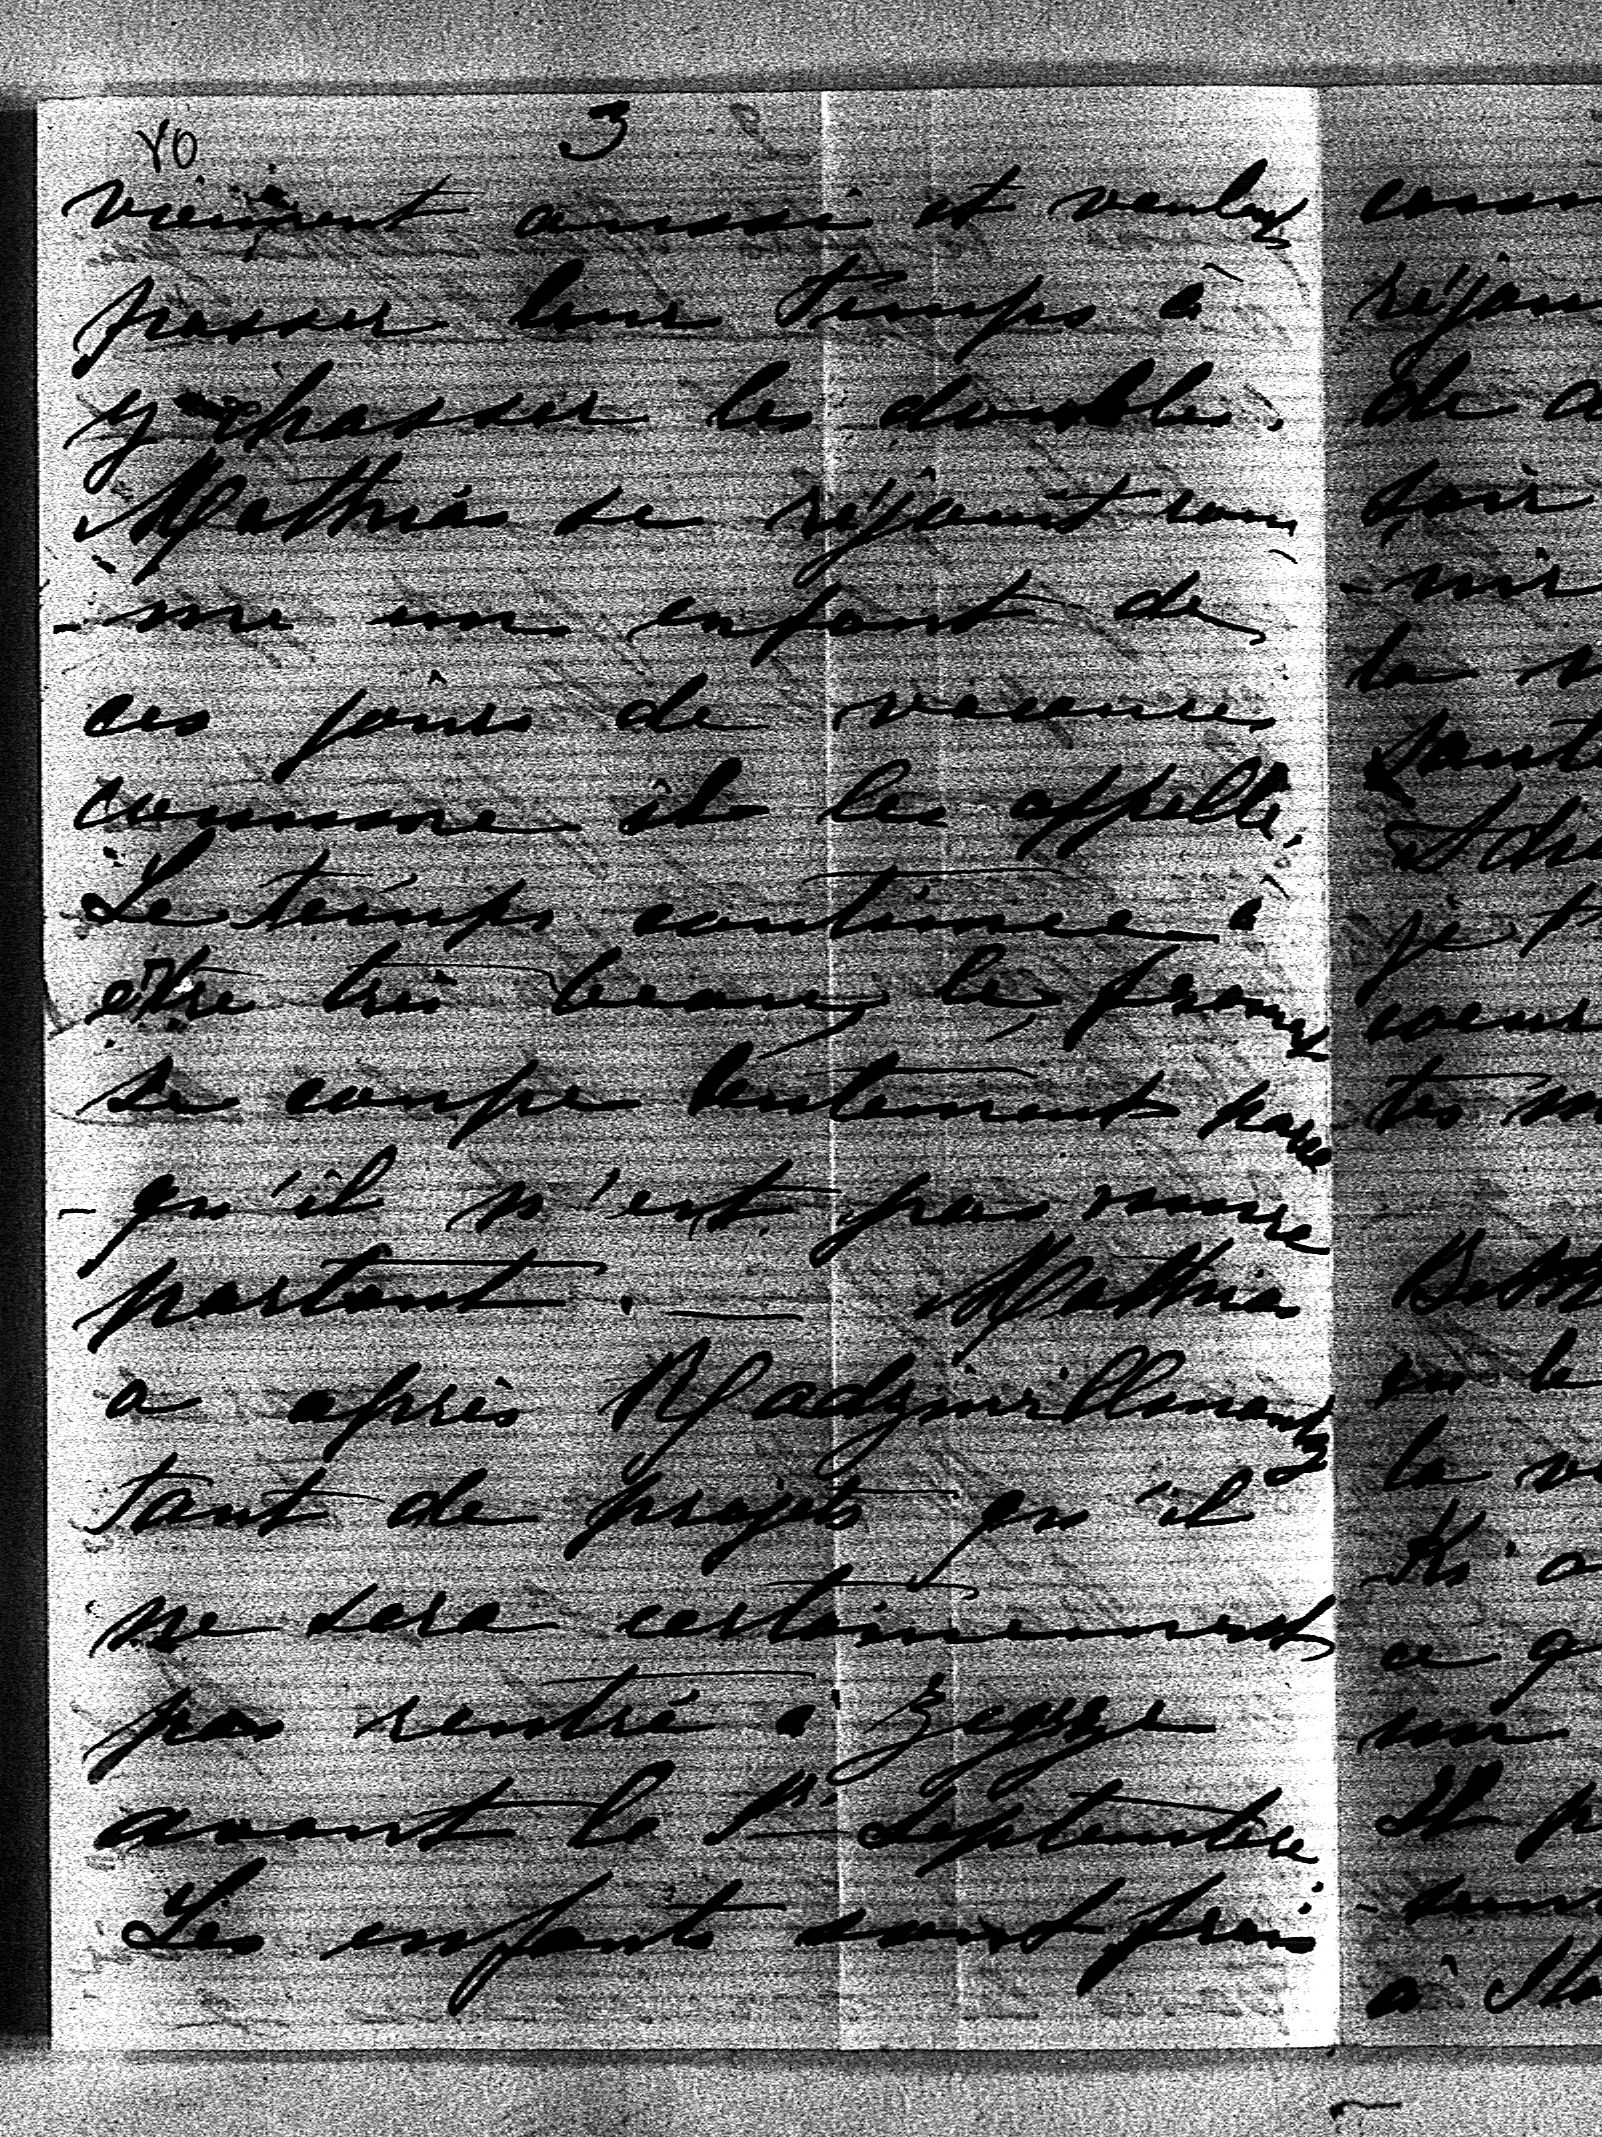 vo 3
viennent aussi et veulent
passer leur temps à
y chasser les doubles.
Mathias se réjouit com
-me un enfant de
ces jours de vacances
comme il les appelle.
Le temps continue à
être très beau, le froment
se coupe lentement parce
- qu'il n'est pas mûre
partout. — Mathias
a après Radziwillmonty
tant de projets qu'il
ne sera certainement
pas rentré à Zegrze
avant le 1r Septembre
Les enfants sont frais
réjoui
de
soir
-nir
la
santé
je
coeur
tes
en
la
Ki
ce
un
Il
à